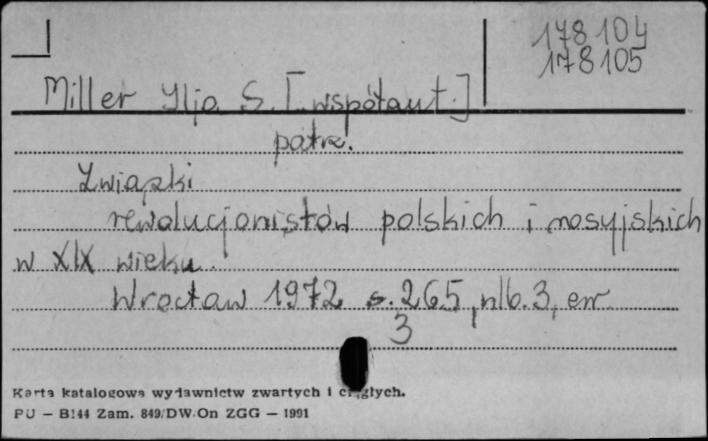 178104
178105
Miller Ilja S. [współaut.]
patrz!
Związki
rewolucjonistów polskich i rosyjskich
w XIX wieku.
Wrocław 1972 s. 265, nlb. 3, err.
3
Karta katalogowa wydawnictw zwartych i ciągłych.
PU — B144 Zam. 849/DW/On ZGG — 1991